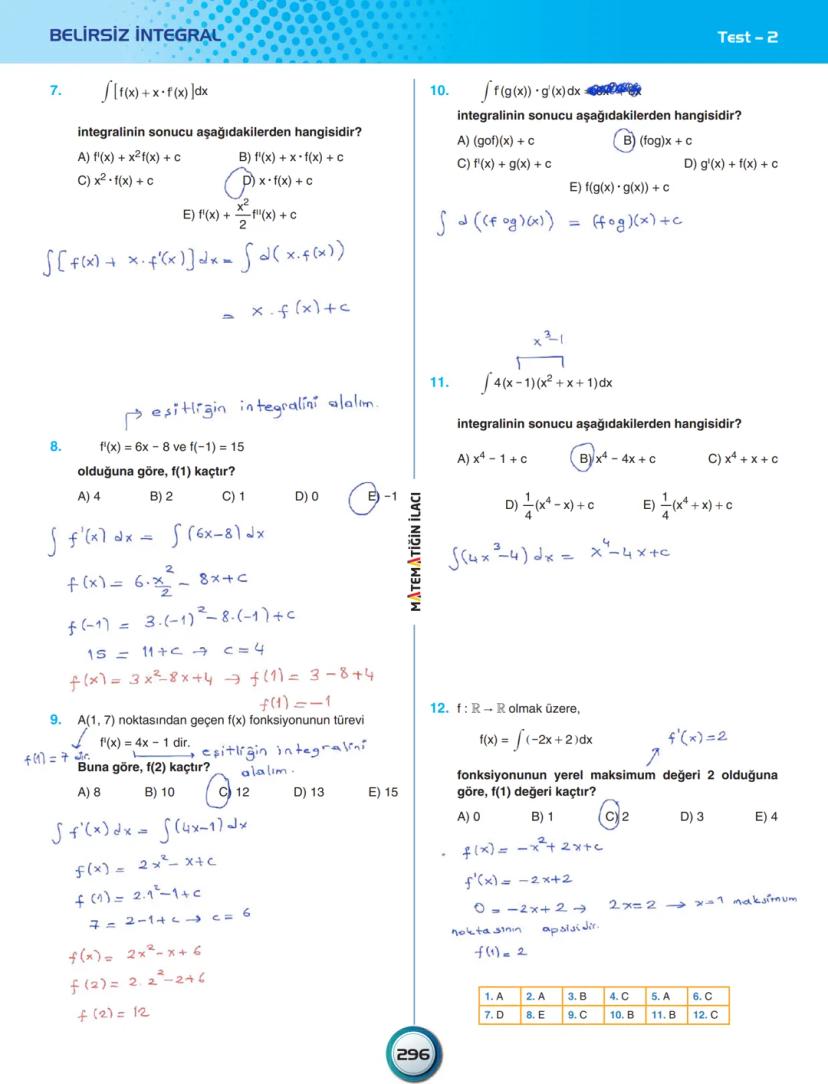 BELİRSİZ İNTEGRAL
Test – 2
7. ∫[f(x) + x · f'(x)]dx
integralinin sonucu aşağıdakilerden hangisidir?
A) f'(x) + x²f(x) + c B) f'(x) + x · f(x) + c
C) x² · f(x) + c D) x · f(x) + c
E) f'(x) + x²/2 f''(x) + c
∫[f(x) + x·f'(x)]dx = ∫d(x·f(x))
= x·f(x)+c
eşitliğin integralini alalım.
8. f'(x) = 6x – 8 ve f(–1) = 15
olduğuna göre, f(1) kaçtır?
A) 4 B) 2 C) 1 D) 0 E) –1
∫f'(x)dx = ∫(6x–8)dx
f(x) = 6·x²/2 – 8x+c
f(–1) = 3·(–1)²–8·(–1)+c
15 = 11+c → c=4
f(x) = 3x²–8x+4 → f(1) = 3–8+4
f(1) = –1
9. A(1, 7) noktasından geçen f(x) fonksiyonunun türevi
f'(x) = 4x – 1 dir. eşitliğin integralini
f(1)=7 dir. Buna göre, f(2) kaçtır? alalım.
A) 8 B) 10 C) 12 D) 13 E) 15
∫f'(x)dx = ∫(4x–1)dx
f(x) = 2x²–x+c
f(1) = 2.1²–1+c
7 = 2–1+c → c=6
f(x) = 2x²–x+6
f(2) = 2.2²–2+6
f(2) = 12
MATEMATİĞİN İLACI
10. ∫f(g(x)) · g'(x)dx
integralinin sonucu aşağıdakilerden hangisidir?
A) (gof)(x) + c B) (fog)x + c
C) f'(x) + g(x) + c D) g'(x) + f(x) + c
E) f(g(x) · g(x)) + c
∫d((fog)(x)) = (fog)(x)+c
x³–1
11. ∫4(x – 1)(x² + x + 1)dx
integralinin sonucu aşağıdakilerden hangisidir?
A) x⁴ – 1 + c B) x⁴ – 4x + c C) x⁴ + x + c
D) 1/4(x⁴ – x) + c E) 1/4(x⁴ + x) + c
∫(4x³–4)dx = x⁴–4x+c
12. f : ℝ → ℝ olmak üzere,
f(x) = ∫(–2x + 2)dx f'(x)=2
fonksiyonunun yerel maksimum değeri 2 olduğuna
göre, f(1) değeri kaçtır?
A) 0 B) 1 C) 2 D) 3 E) 4
f(x) = –x²+2x+c
f'(x) = –2x+2
0 = –2x+2 → 2x=2 → x=1 maksimum
noktasının apsisidir.
f(1) = 2
1. A 2. A 3. B 4. C 5. A 6. C
7. D 8. E 9. C 10. B 11. B 12. C
296